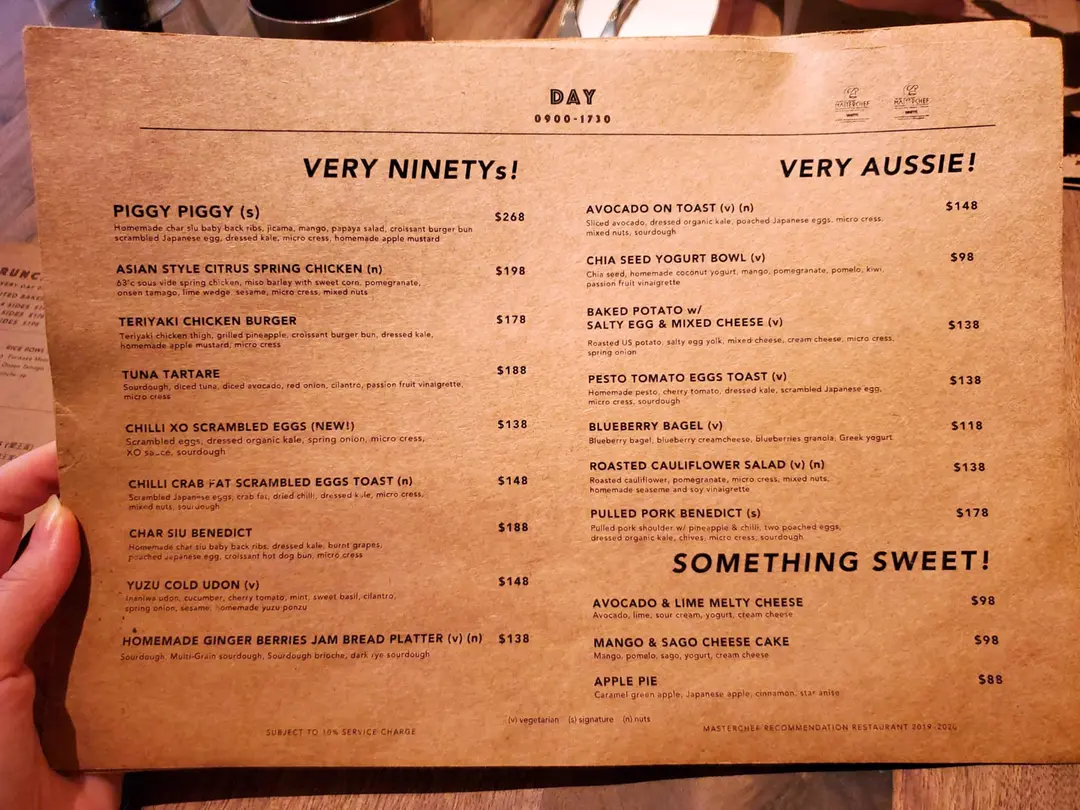 DAY
0900-1730
MASTERCHEF
MASTERCHEF
VERY NINETYs!
PIGGY PIGGY (s) $268
Homemade char siu baby back ribs, jicama, mango, papaya salad, croissant burger bun
scrambled Japanese egg, dressed kale, micro cress, homemade apple mustard
ASIAN STYLE CITRUS SPRING CHICKEN (n) $198
63°c sous vide spring chicken, miso barley with sweet corn, pomegranate,
onsen tamago, lime wedge, sesame, micro cress, mixed nuts
TERIYAKI CHICKEN BURGER $178
Teriyaki chicken thigh, grilled pineapple, croissant burger bun, dressed kale,
homemade apple mustard, micro cress
TUNA TARTARE $188
Sourdough, diced tuna, diced avocado, red onion, cilantro, passion fruit vinaigrette,
micro cress
CHILLI XO SCRAMBLED EGGS (NEW!) $138
Scrambled eggs, dressed organic kale, spring onion, micro cress,
XO sauce, sourdough
CHILLI CRAB FAT SCRAMBLED EGGS TOAST (n) $148
Scrambled Japanese eggs, crab fat, dried chilli, dressed kale, micro cress,
mixed nuts, sourdough
CHAR SIU BENEDICT $188
Homemade char siu baby back ribs, dressed kale, burnt grapes,
poached Japanese egg, croissant hot dog bun, micro cress
YUZU COLD UDON (v) $148
Inaniwa udon, cucumber, cherry tomato, mint, sweet basil, cilantro,
spring onion, sesame, homemade yuzu ponzu
HOMEMADE GINGER BERRIES JAM BREAD PLATTER (v) (n) $138
Sourdough, Multi-Grain sourdough, Sourdough brioche, dark rye sourdough
VERY AUSSIE!
AVOCADO ON TOAST (v) (n) $148
Sliced avocado, dressed organic kale, poached Japanese eggs, micro cress,
mixed nuts, sourdough
CHIA SEED YOGURT BOWL (v) $98
Chia seed, homemade coconut yogurt, mango, pomegranate, pomelo, kiwi,
passion fruit vinaigrette
BAKED POTATO w/
SALTY EGG & MIXED CHEESE (v) $138
Roasted US potato, salty egg yolk, mixed cheese, cream cheese, micro cress,
spring onion
PESTO TOMATO EGGS TOAST (v) $138
Homemade pesto, cherry tomato, dressed kale, scrambled Japanese egg,
micro cress, sourdough
BLUEBERRY BAGEL (v) $118
Blueberry bagel, blueberry creamcheese, blueberries granola, Greek yogurt
ROASTED CAULIFLOWER SALAD (v) (n) $138
Roasted cauliflower, pomegranate, micro cress, mixed nuts,
homemade seaseme and soy vinaigrette
PULLED PORK BENEDICT (s) $178
Pulled pork shoulder w/ pineapple & chilli, two poached eggs,
dressed organic kale, chives, micro cress, sourdough
SOMETHING SWEET!
AVOCADO & LIME MELTY CHEESE $98
Avocado, lime, sour cream, yogurt, cream cheese
MANGO & SAGO CHEESE CAKE $98
Mango, pomelo, sago, yogurt, cream cheese
APPLE PIE $88
Caramel green apple, Japanese apple, cinnamon, star anise
(v) vegetarian (s) signature (n) nuts
SUBJECT TO 10% SERVICE CHARGE
MASTERCHEF RECOMMENDATION RESTAURANT 2019-2020